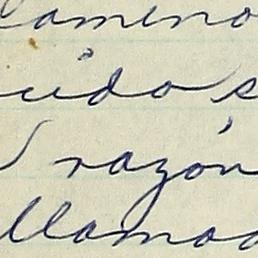 camino
cido s
razón
llamad